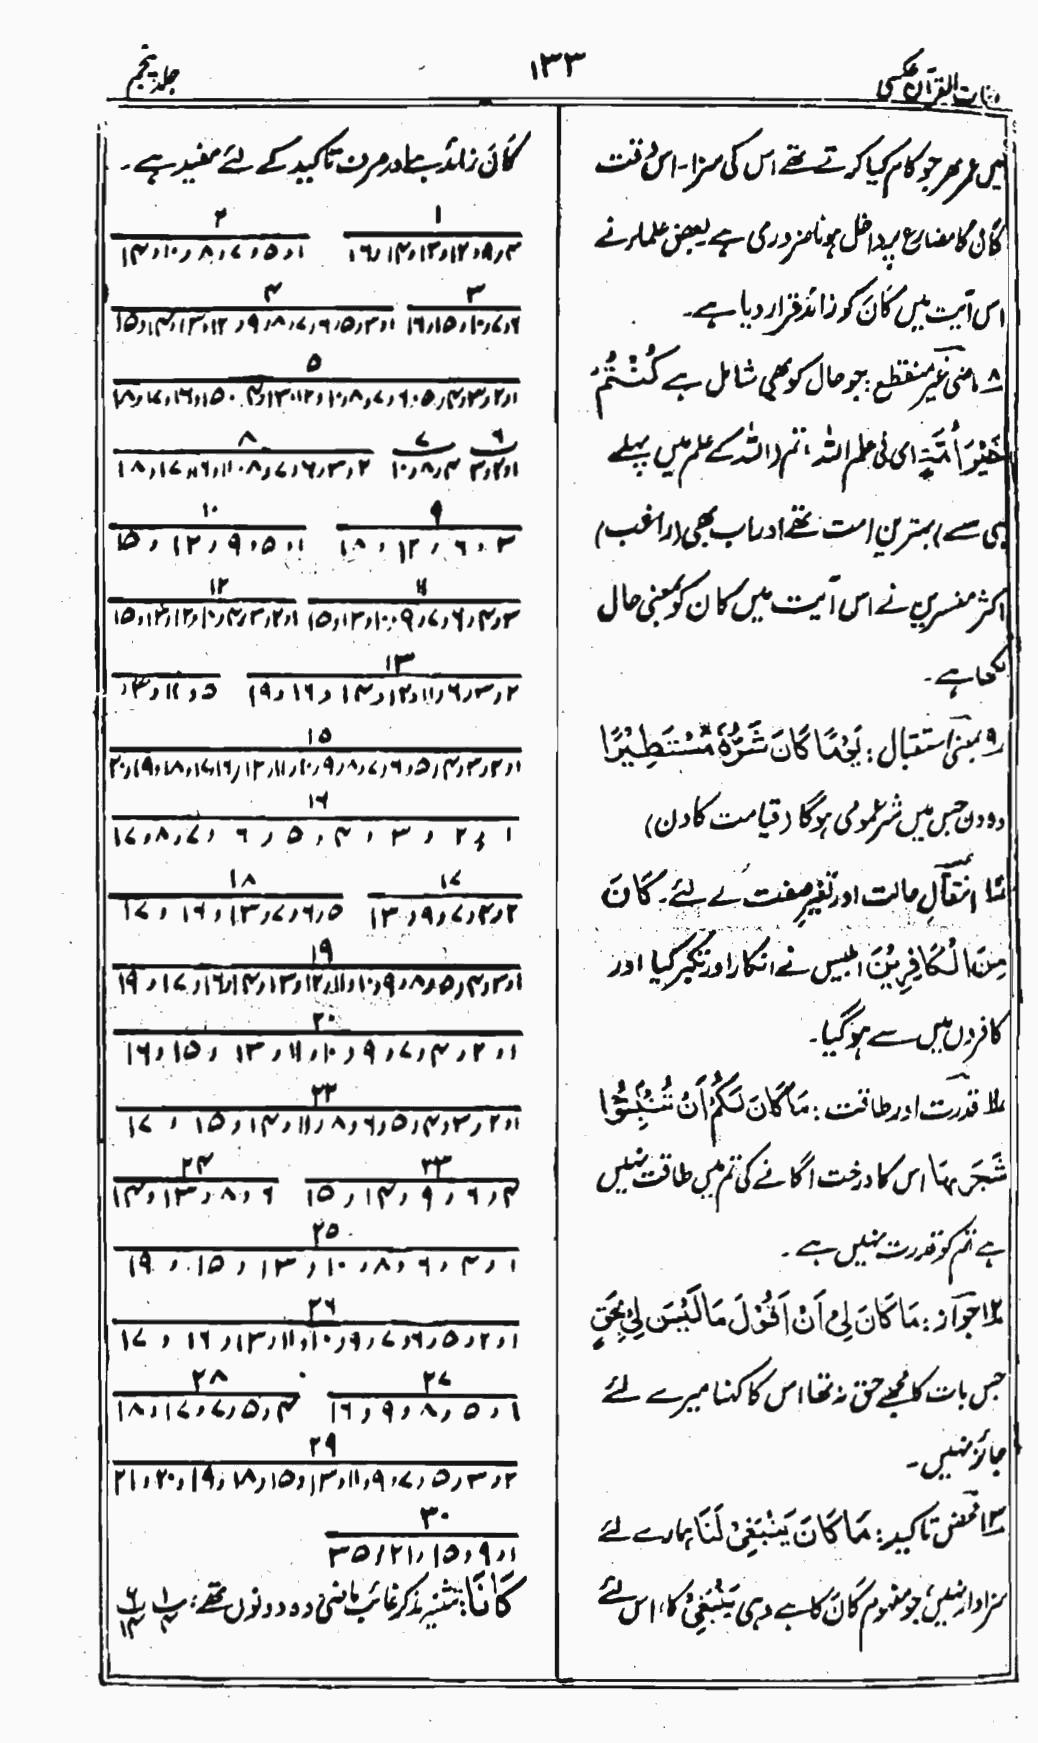 لغات القرآن عکسی
۱۳۳
جلد پنجم
میں عمر بھر جو کام کیا کرتے تھے اس کی سزا۔ اس وقت
کان کا مضارع پر داخل ہونا ضروری ہے بعض علماء نے
اس آیت میں کَانَ کو زائد قرار دیا ہے۔
۸ ماضی غیر منقطع: جو حال کو بھی شامل ہے کُنْتُمْ
خَیْرَ اُمَّۃٍ ای فی علم اللہ، تم (اللہ کے علم میں پہلے
ہی سے) بہترین امت تھے اور اب بھی (راغب)
اکثر مفسرین نے اس آیت میں کان کو بمعنی حال
لکھا ہے۔
۹ بمعنی استقبال: یَوْمًا کَانَ شَرُّہٗ مُسْتَطِیْرًا
وہ دن جس میں شر عمومی ہوگا (قیامت کا دن)
۱۰ انتقالِ حالت اور تغیرِ صفت کے لئے۔ کَانَ
مِنَ الْکَافِرِیْنَ ابلیس نے انکار اور تکبر کیا اور
کافروں میں سے ہو گیا۔
۱۱ قدرت اور طاقت: مَا کَانَ لَکُمْ اَنْ تُنْبِتُوْا
شَجَرَہَا اس کا درخت اگانے کی تم میں طاقت نہیں
ہے تم کو قدرت نہیں ہے۔
۱۲ جواز: مَا کَانَ لِیْ اَنْ اَقُوْلَ مَا لَیْسَ لِیْ بِحَقٍّ
جس بات کا مجھے حق نہ تھا اس کا کہنا میرے لئے
جائز نہیں۔
۱۳ محض تاکید: مَا کَانَ یَنْبَغِیْ لَنَا ہمارے لئے
سزاوار نہیں، جو مفہوم کَانَ کا ہے وہی یَنْبَغِیْ کا، اس لئے
کَانَ زائد ہے اور صرف تاکید کے لئے مفید ہے۔
۱ ۲
۴، ۹، ۱۲، ۱۳، ۱۴، ۱۶ ۱، ۵، ۷، ۸، ۱۰، ۱۴
۳ ۴
۶، ۷، ۱۰، ۱۵، ۱۶ ۱، ۳، ۵، ۶، ۷، ۸، ۹، ۱۲، ۱۳، ۱۴، ۱۵
۵
۱، ۲، ۳، ۴، ۵، ۶، ۷، ۸، ۱۰، ۱۲، ۱۳، ۱۴، ۱۵، ۱۶، ۱۷، ۱۸
۶ ۷ ۸
۱، ۲، ۳ ۴، ۸، ۱۰ ۲، ۳، ۶، ۷، ۸، ۱۱، ۱۶، ۱۷، ۱۸
۹ ۱۰
۳، ۶، ۱۲، ۱۸ ۱، ۵، ۹، ۱۲، ۱۵
۱۱ ۱۲
۳، ۴، ۶، ۷، ۹، ۱۰، ۱۲، ۱۵ ۱، ۲، ۳، ۴، ۱۰، ۱۲، ۱۴، ۱۵
۱۳
۲، ۳، ۶، ۱۱، ۱۲، ۱۴، ۱۶، ۱۹ ۵، ۱۱، ۱۳
۱۵
۱، ۲، ۳، ۴، ۵، ۶، ۷، ۸، ۹، ۱۰، ۱۱، ۱۲، ۱۶، ۱۷، ۱۸، ۱۹، ۲۰
۱۶
۱، ۲، ۳، ۴، ۵، ۶، ۷، ۸، ۱۷
۱۷ ۱۸
۲، ۴، ۷، ۹، ۱۳ ۵، ۶، ۷، ۱۳، ۱۶، ۱۷
۱۹
۱، ۳، ۴، ۵، ۸، ۹، ۱۰، ۱۱، ۱۲، ۱۳، ۱۴، ۱۶، ۱۷، ۱۹
۲۰
۱، ۲، ۴، ۷، ۹، ۱۰، ۱۱، ۱۳، ۱۵، ۱۶
۲۲
۱، ۲، ۳، ۴، ۵، ۶، ۸، ۱۱، ۱۴، ۱۵، ۱۷
۲۳ ۲۴
۴، ۶، ۹، ۱۴، ۱۵ ۶، ۸، ۱۳، ۱۴
۲۵
۱، ۴، ۶، ۸، ۱۰، ۱۳، ۱۵، ۱۹
۲۶
۱، ۲، ۵، ۶، ۷، ۹، ۱۰، ۱۱، ۱۳، ۱۶، ۱۷
۲۷ ۲۸
۱، ۵، ۸، ۹، ۱۶ ۴، ۵، ۷، ۱۷، ۱۸
۲۹
۲، ۳، ۵، ۷، ۹، ۱۱، ۱۳، ۱۵، ۱۸، ۱۹، ۲۰، ۲۱
۳۰
۱، ۹، ۱۵، ۲۱، ۳۵
کَانَا: تثنیہ مذکر غائب ماضی وہ دونوں تھے: پ ۱/۴ پ ۶/۱۴